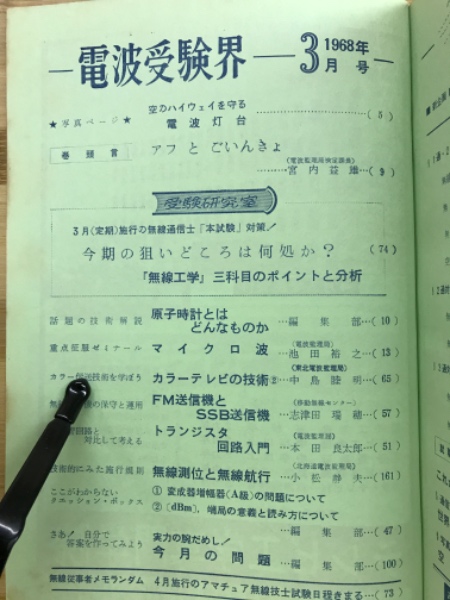 電波受験界
1968年
3月号
空のハイウェイを守る
★写真ページ★ 電波灯台 (5)
巻頭言 アフとごいんきょ
宮内益雄 (9)
受験研究室
3月(定期)施行の無線通信士「本試験」対策!
今期の狙いどころは何処か? (74)
『無線工学』三科目のポイントと分析
話題の技術解説 原子時計とはどんなものか 編集部 (10)
(電波監理局)
重点征服ゼミナール マイクロ波 池田裕之 (13)
(東北電波監理局)
カラー 技術を学ぼう カラーテレビの技術 中島睦明 (65)
(移動無線センター)
の保守と運用 FM送信機とSSB送信機 志津田瑞穂 (57)
(電波監理局)
対比して考える トランジスタ回路入門 本田良太郎 (51)
(北海道電波監理局)
技術的にみた施行規則 無線測位と無線航行 小松静夫 (161)
ここがわからない
クエッション・ボックス
① 変成器増幅器(A級)の問題について
② 〔dBm〕,端局の意義と読み方について (47)
さあ!自分で
答案を作ってみよう
実力の腕だめし!
今月の問題 編集部 (100)
無線従事者メモランダム 4月施行のアマチュア無線技士試験日程きまる (73)